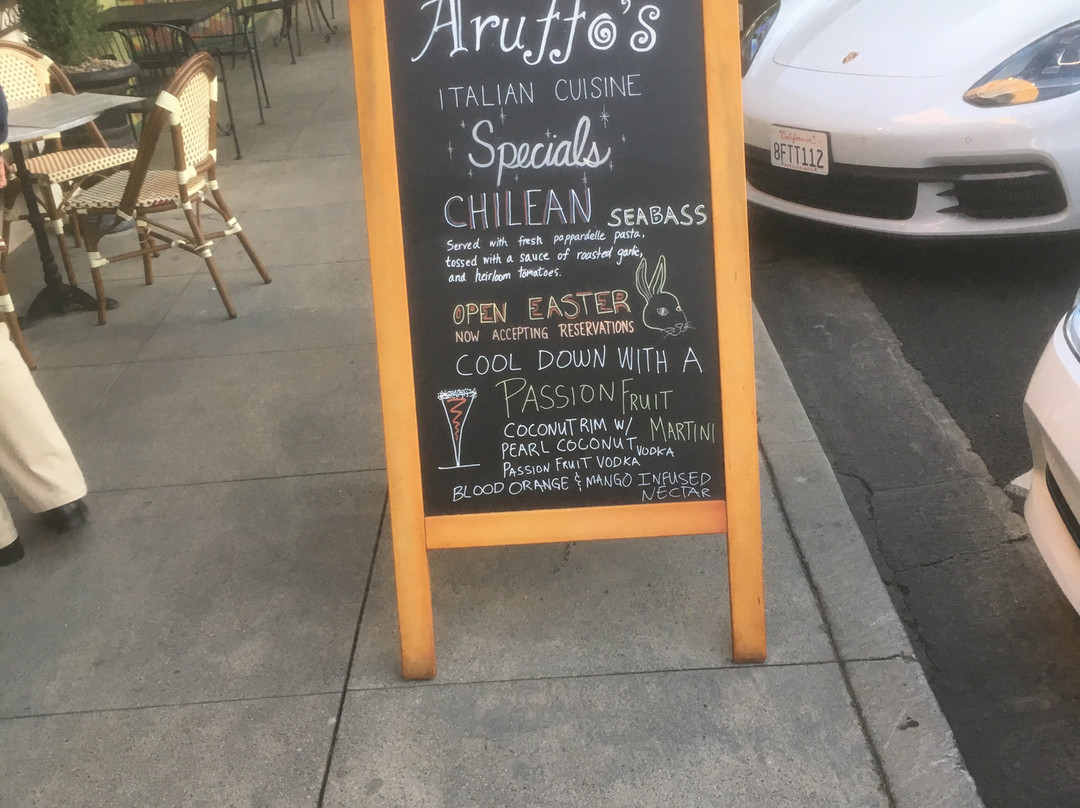 Aruffo's
ITALIAN CUISINE
Specials
CHILEAN SEABASS
Served with fresh pappardelle pasta,
tossed with a sauce of roasted garlic,
and heirloom tomatoes.
OPEN EASTER
NOW ACCEPTING RESERVATIONS
COOL DOWN WITH A
PASSION FRUIT
MARTINI
COCONUT RIM W/
PEARL COCONUT VODKA
PASSION FRUIT VODKA
BLOOD ORANGE & MANGO INFUSED
NECTAR
California
8FTT112